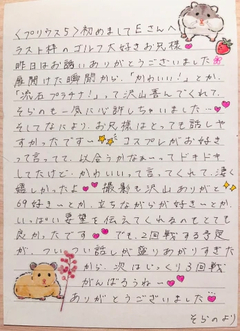 〈プリウス5〉初めましてEさんへ
ラスト枠のゴルフ大好きお兄様
昨日はお誘いありがとうございました
展開けた瞬間から、「かわいい!」とか、
「流石プラチナ!」って沢山喜んでくれて、
そらのも一気に心許しちゃいました…
そしてなにより、お兄様はとっても話しや
すかったですー コスプレがお好き
って言ってて、似合うかなぁーってドキドキ
してたけど…かわいいって言ってくれて、凄く
嬉しかったよ 撮影も沢山ありがと
69好きーとか、立ちながらが好きーとか、
いっぱい要望を伝えてくれるのもとても
良かったです でも、2回戦する予定
が、ついつい話しが盛りあがりすぎた
から、次はじっくり3回戦
がんばろうねー
ありがとうございました
そらのより